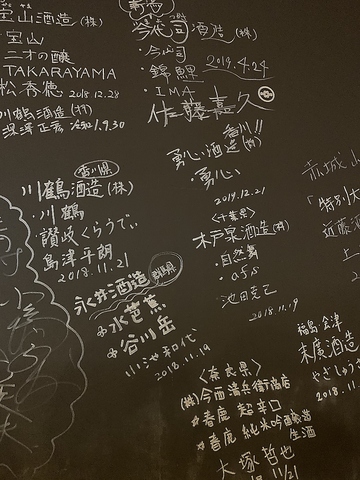 宝山酒造(株)
・宝山
・二才の醸
・TAKARAYAMA
2018.12.28
川鶴酒造(株)
1.9.30
新潟
今代司酒造(株)
・今代司
・錦鯉
2019.4.24
・IMA
佐藤嘉久
香川!!
勇心酒造(株)
・勇心
2019.12.21
香川県
川鶴酒造(株)
・川鶴
讃岐くらうでぃ
島津平朗
2018.11.21
<千葉県>
木戸泉酒造(株)
・自然舞
・afs
池田克己
2018.11.19
永井酒造 群馬県
水芭蕉
谷川岳
小池和代
2018.11.19
赤城山
「特別大
近藤酒
福島 会津
末廣酒造
やさしゅう
<奈良県>
(株)今西清兵衛商店
春鹿 超辛口
春鹿 純米吟醸
生酒
大塚哲也
11/21